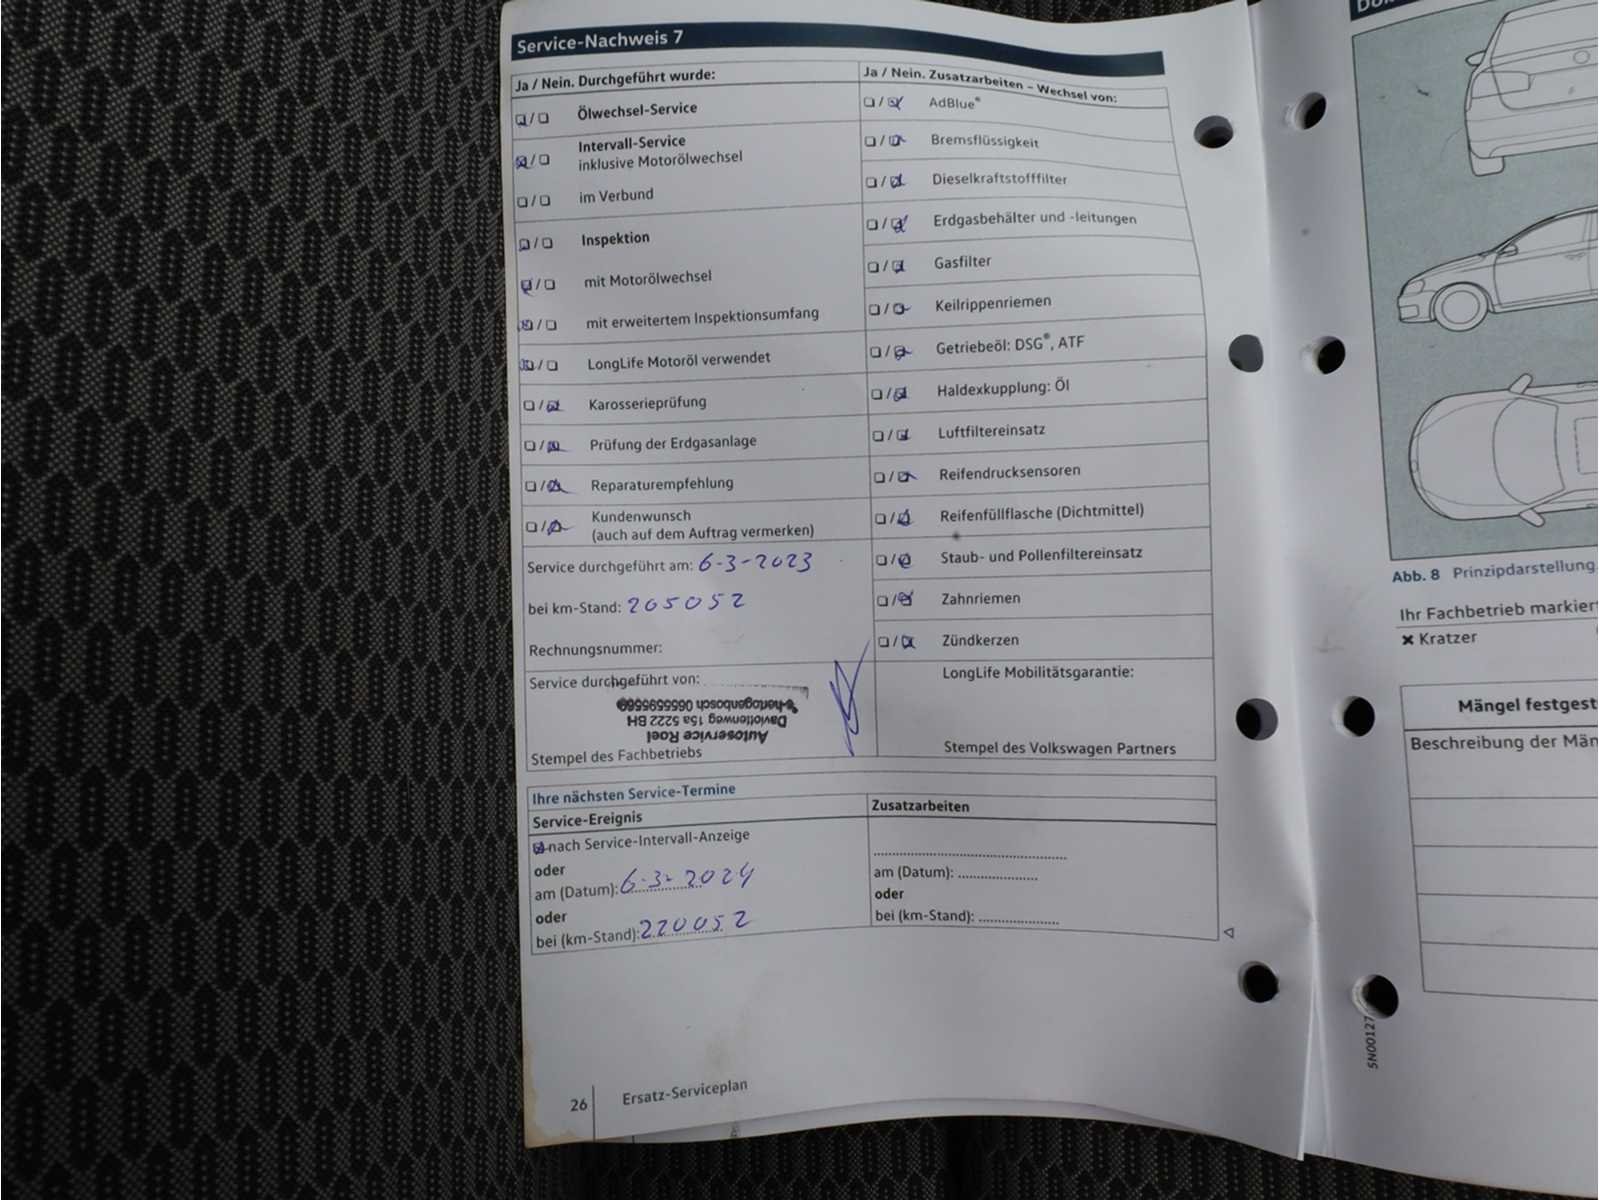 Service-Nachweis 7
Ja / Nein. Durchgeführt wurde:
Ölwechsel-Service
Intervall-Service
inklusive Motorölwechsel
im Verbund
Inspektion
mit Motorölwechsel
mit erweitertem Inspektionsumfang
LongLife Motoröl verwendet
Karosserieprüfung
Prüfung der Erdgasanlage
Reparaturempfehlung
Kundenwunsch
(auch auf dem Auftrag vermerken)
Service durchgeführt am: 6-3-2023
bei km-Stand: 205052
Rechnungsnummer:
Service durchgeführt von:
Autoservice Roel
15a 5222 BH
s-hertogenbosch
Stempel des Fachbetriebs
Ja / Nein. Zusatzarbeiten – Wechsel von:
AdBlue®
Bremsflüssigkeit
Dieselkraftstofffilter
Erdgasbehälter und -leitungen
Gasfilter
Keilrippenriemen
Getriebeöl: DSG®, ATF
Haldexkupplung: Öl
Luftfiltereinsatz
Reifendrucksensoren
Reifenfüllflasche (Dichtmittel)
Staub- und Pollenfiltereinsatz
Zahnriemen
Zündkerzen
LongLife Mobilitätsgarantie:
Stempel des Volkswagen Partners
Ihre nächsten Service-Termine
Service-Ereignis
nach Service-Intervall-Anzeige
oder
am (Datum): 6-3-2024
oder
bei (km-Stand): 220052
Zusatzarbeiten
am (Datum):
oder
bei (km-Stand):
26
Ersatz-Serviceplan
Abb. 8 Prinzipdarstellung
Ihr Fachbetrieb markier
✖ Kratzer
Mängel festgest
Beschreibung der Män
5N00127